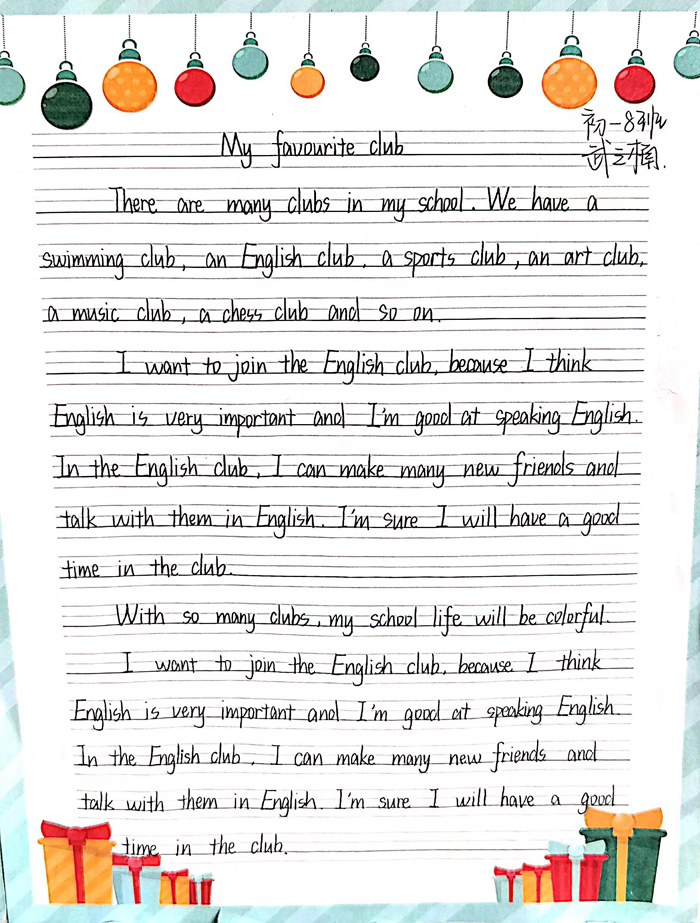 初一8班
武立楠.
My favourite club
There are many clubs in my school. We have a
swimming club, an English club, a sports club, an art club,
a music club, a chess club and so on.
I want to join the English club, because I think
English is very important and I'm good at speaking English.
In the English club, I can make many new friends and
talk with them in English. I'm sure I will have a good
time in the club.
With so many clubs, my school life will be colorful.
I want to join the English club, because I think
English is very important and I'm good at speaking English.
In the English club, I can make many new friends and
talk with them in English. I'm sure I will have a good
time in the club.